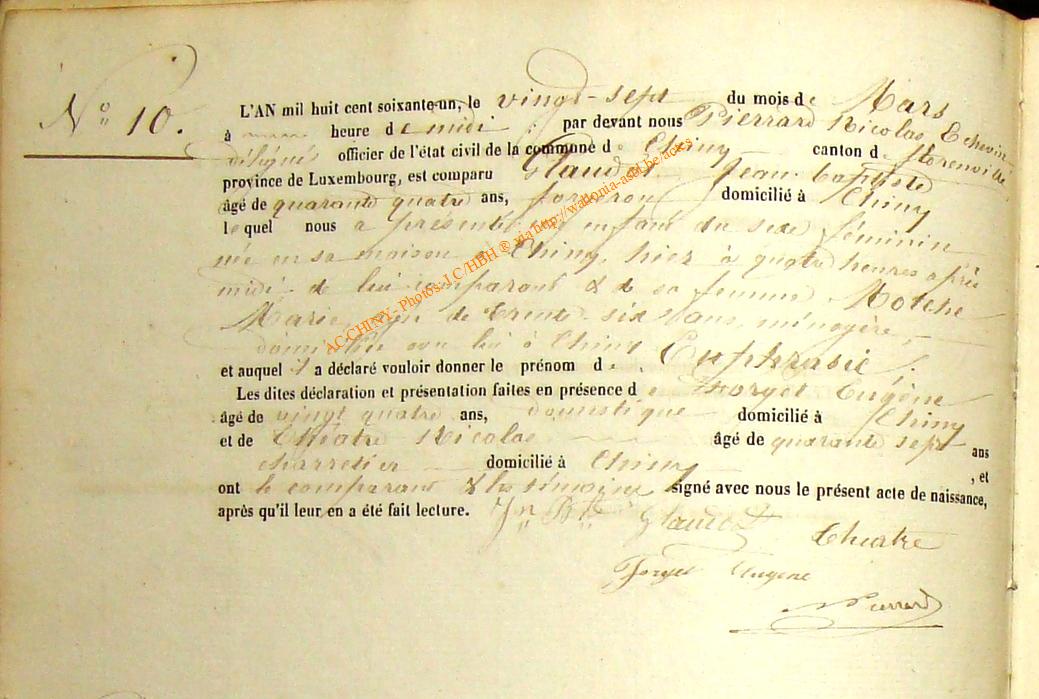 N° 10.
L'AN mil huit cent soixante-un, le vingt-sept du mois de Mars
à heure de midi par devant nous Pierrard Nicolas Echevin
délégué officier de l'état civil de la commune de Chiny canton de Florenville
province de Luxembourg, est comparu Glaudot Jean Baptiste
âgé de quarante quatre ans, forgeron domicilié à Chiny
lequel nous a présenté un enfant du sexe féminin
née en sa maison à Chiny, hier à quatre heures après
midi de lui comparant & de sa femme
Marie de trente-six ans, ménagère,
domiciliée avec lui à Chiny
et auquel il a déclaré vouloir donner le prénom de Euphrasie.
Les dites déclaration et présentation faites en présence de Forget Eugène
âgé de vingt quatre ans, domestique domicilié à Chiny
et de Nicolas âgé de quarante sept ans
charretier domicilié à Chiny , et
ont le comparant & les témoins signé avec nous le présent acte de naissance,
après qu'il leur en a été fait lecture. Jn Bte Glaudot
Forget Eugène
Pierrard
AC.CHINY- Photos: J.C/HBH ® via http://wallonia-asbl.be/actes